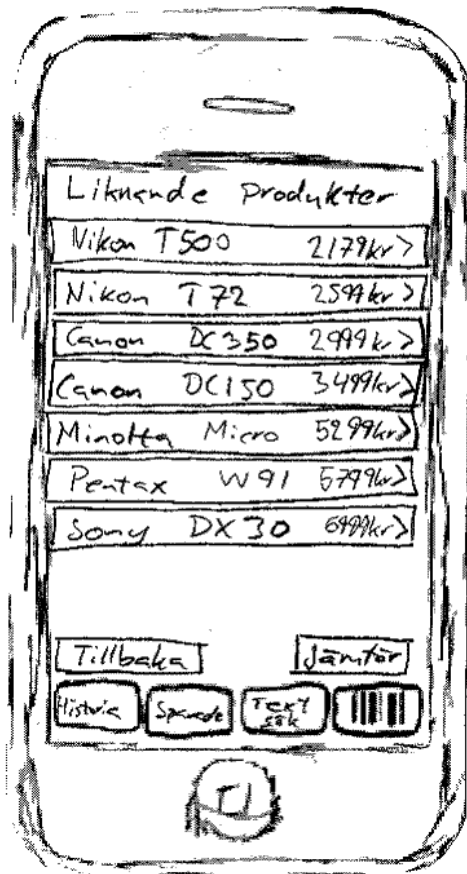 Liknande produkter
Nikon T500 2179kr >
Nikon T72 2599kr >
Canon DC350 2999kr >
Canon DC150 3499kr >
Minolta Micro 5299kr >
Pentax W91 5799kr >
Sony DX30 6999kr >
Tillbaka Jämför
Historia Sparade Text
sök